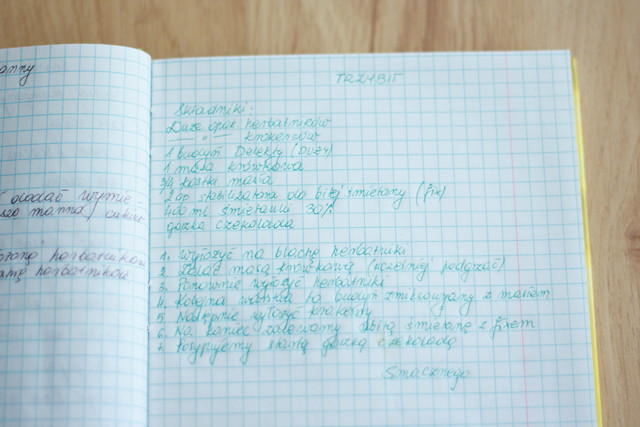 anny
dodać wymie-
manna, cukier
herbatników
herbatników
TRZYBIT
Składniki:
Duże opak. herbatników
—— " —— krakersów
1 budyń Delecty (duży)
1 masa krówkowa
3/4 kostki masła
2 op. stabilizatora do bitej śmietany (fix)
400 ml śmietanki 30%
gorzka czekolada
1. Wyłożyć na blachę herbatniki
2. Zalać masą krówkową (wcześniej podgrzać)
3. Ponownie wyłożyć herbatniki
4. Kolejna warstwa to budyń zmiksowany z masłem
5. Następnie wyłożyć krakersy
6. Na koniec zalewamy ubitą śmietaną z fixem
7. Posypujemy startą gorzką czekoladą
Smacznego